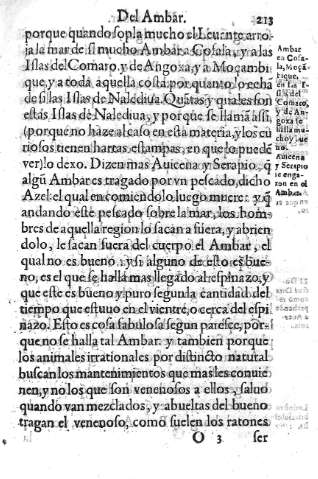 Del Ambar.
213
porque quando sopla mucho el Leuante, arro
ja la mar de si mucho Ambar a Cofala, y a las
Islas del Comaro, y de Angoxa, y a Moçambi
que, y a toda aquella costa, por quanto lo echa
de si las Islas de Naledíua. Quãtas y quales son
estás Islas de Naleduua, y porque se llamã assi,
(porque no haze al caso en esta materia, y los cu
riosos tienen hartas estampas, en que lo puedẽ
ver) lo dexo. Dizen mas Auicena y Serapio, q̃
algũ Ambar es tragado por vn pescado, dicho
Azel: el qual en comiendolo luego muere: y q̃
andando este pescado sobre la mar, los hom
bres de aquella region lo sacan a fuera, y abrien
dolo, le sacan fuera del cuerpo el Ambar, el
qual no es bueno: y si alguno de esto es bue
no, es el que se halla mas llegado al espinazo, y
que este es bueno y puro segun la cantidad del
tiempo que estuuo en el vientre, o cerca del espi
nazo. Esto es cosa fabulosa segun paresce, por
que no se halla tal Ambar: y tambien porque
los animales irrationales por distincto natural
buscan los mantenimientos que mas les conuie
nen, y no los que son venenosos a ellos, saluo
quando van mezclados, y abueltas del bueno
tragan el venenoso, como suelen los ratones
O 3
ser
Ambar
en Cofa
la, Moçã
bique,
en las
Islas del
Comaro,
y de An
goxa
Auicena
y Serapio
se enga
ñaron en el
Ambar.